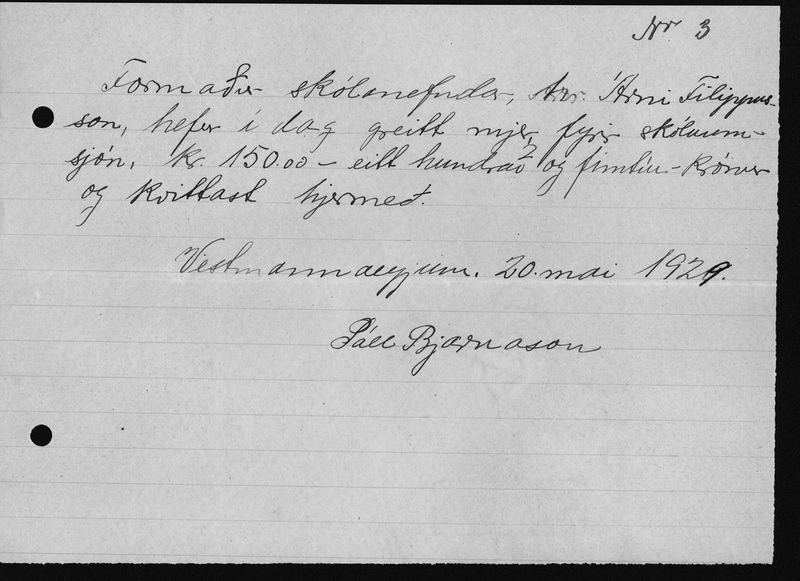 Nr 3
Formaður skólanefndar, hr. Árni Filippus-
son, hefur í dag greitt mjer, fyrir skólaum-
sjón, kr. 150.00 – eitt hundrað og fimtíu – krónur
og kvittast hjermeð.
Vestmannaeyjum, 20. maí 1929.
Páll Bjarnason